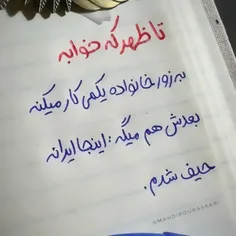 تا ظهر که خوابه
به زور خانواده یکمی کار میکنه
بعدش هم میگه: اینجا ایرانه
حیف شدم.
@MAHDIPOURASKARI